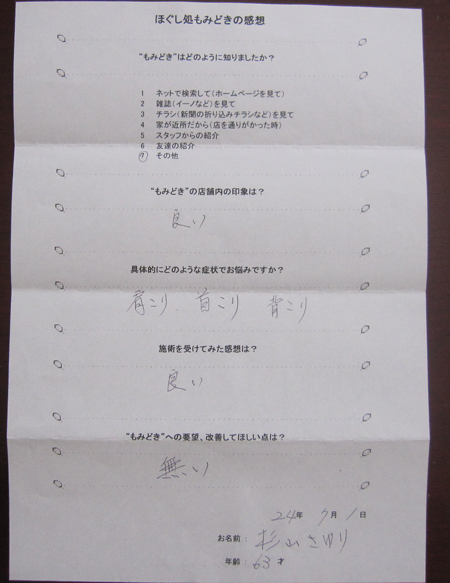 ほぐし処もみどきの感想
“もみどき”はどのように知りましたか？
1 ネットで検索して(ホームページを見て)
2 雑誌(イーノなど)を見て
3 チラシ(新聞の折り込みチラシなど)を見て
4 家が近所だから(店を通りがかった時)
5 スタッフからの紹介
6 友達の紹介
⑦ その他
“もみどき”の店舗内の印象は？
良い
具体的にどのような症状でお悩みですか？
肩こり、首こり 背こり
施術を受けてみた感想は？
良い
“もみどき”への要望、改善してほしい点は？
無い
24年 7月 1日
お名前： 杉山さゆり
年齢： 63 才